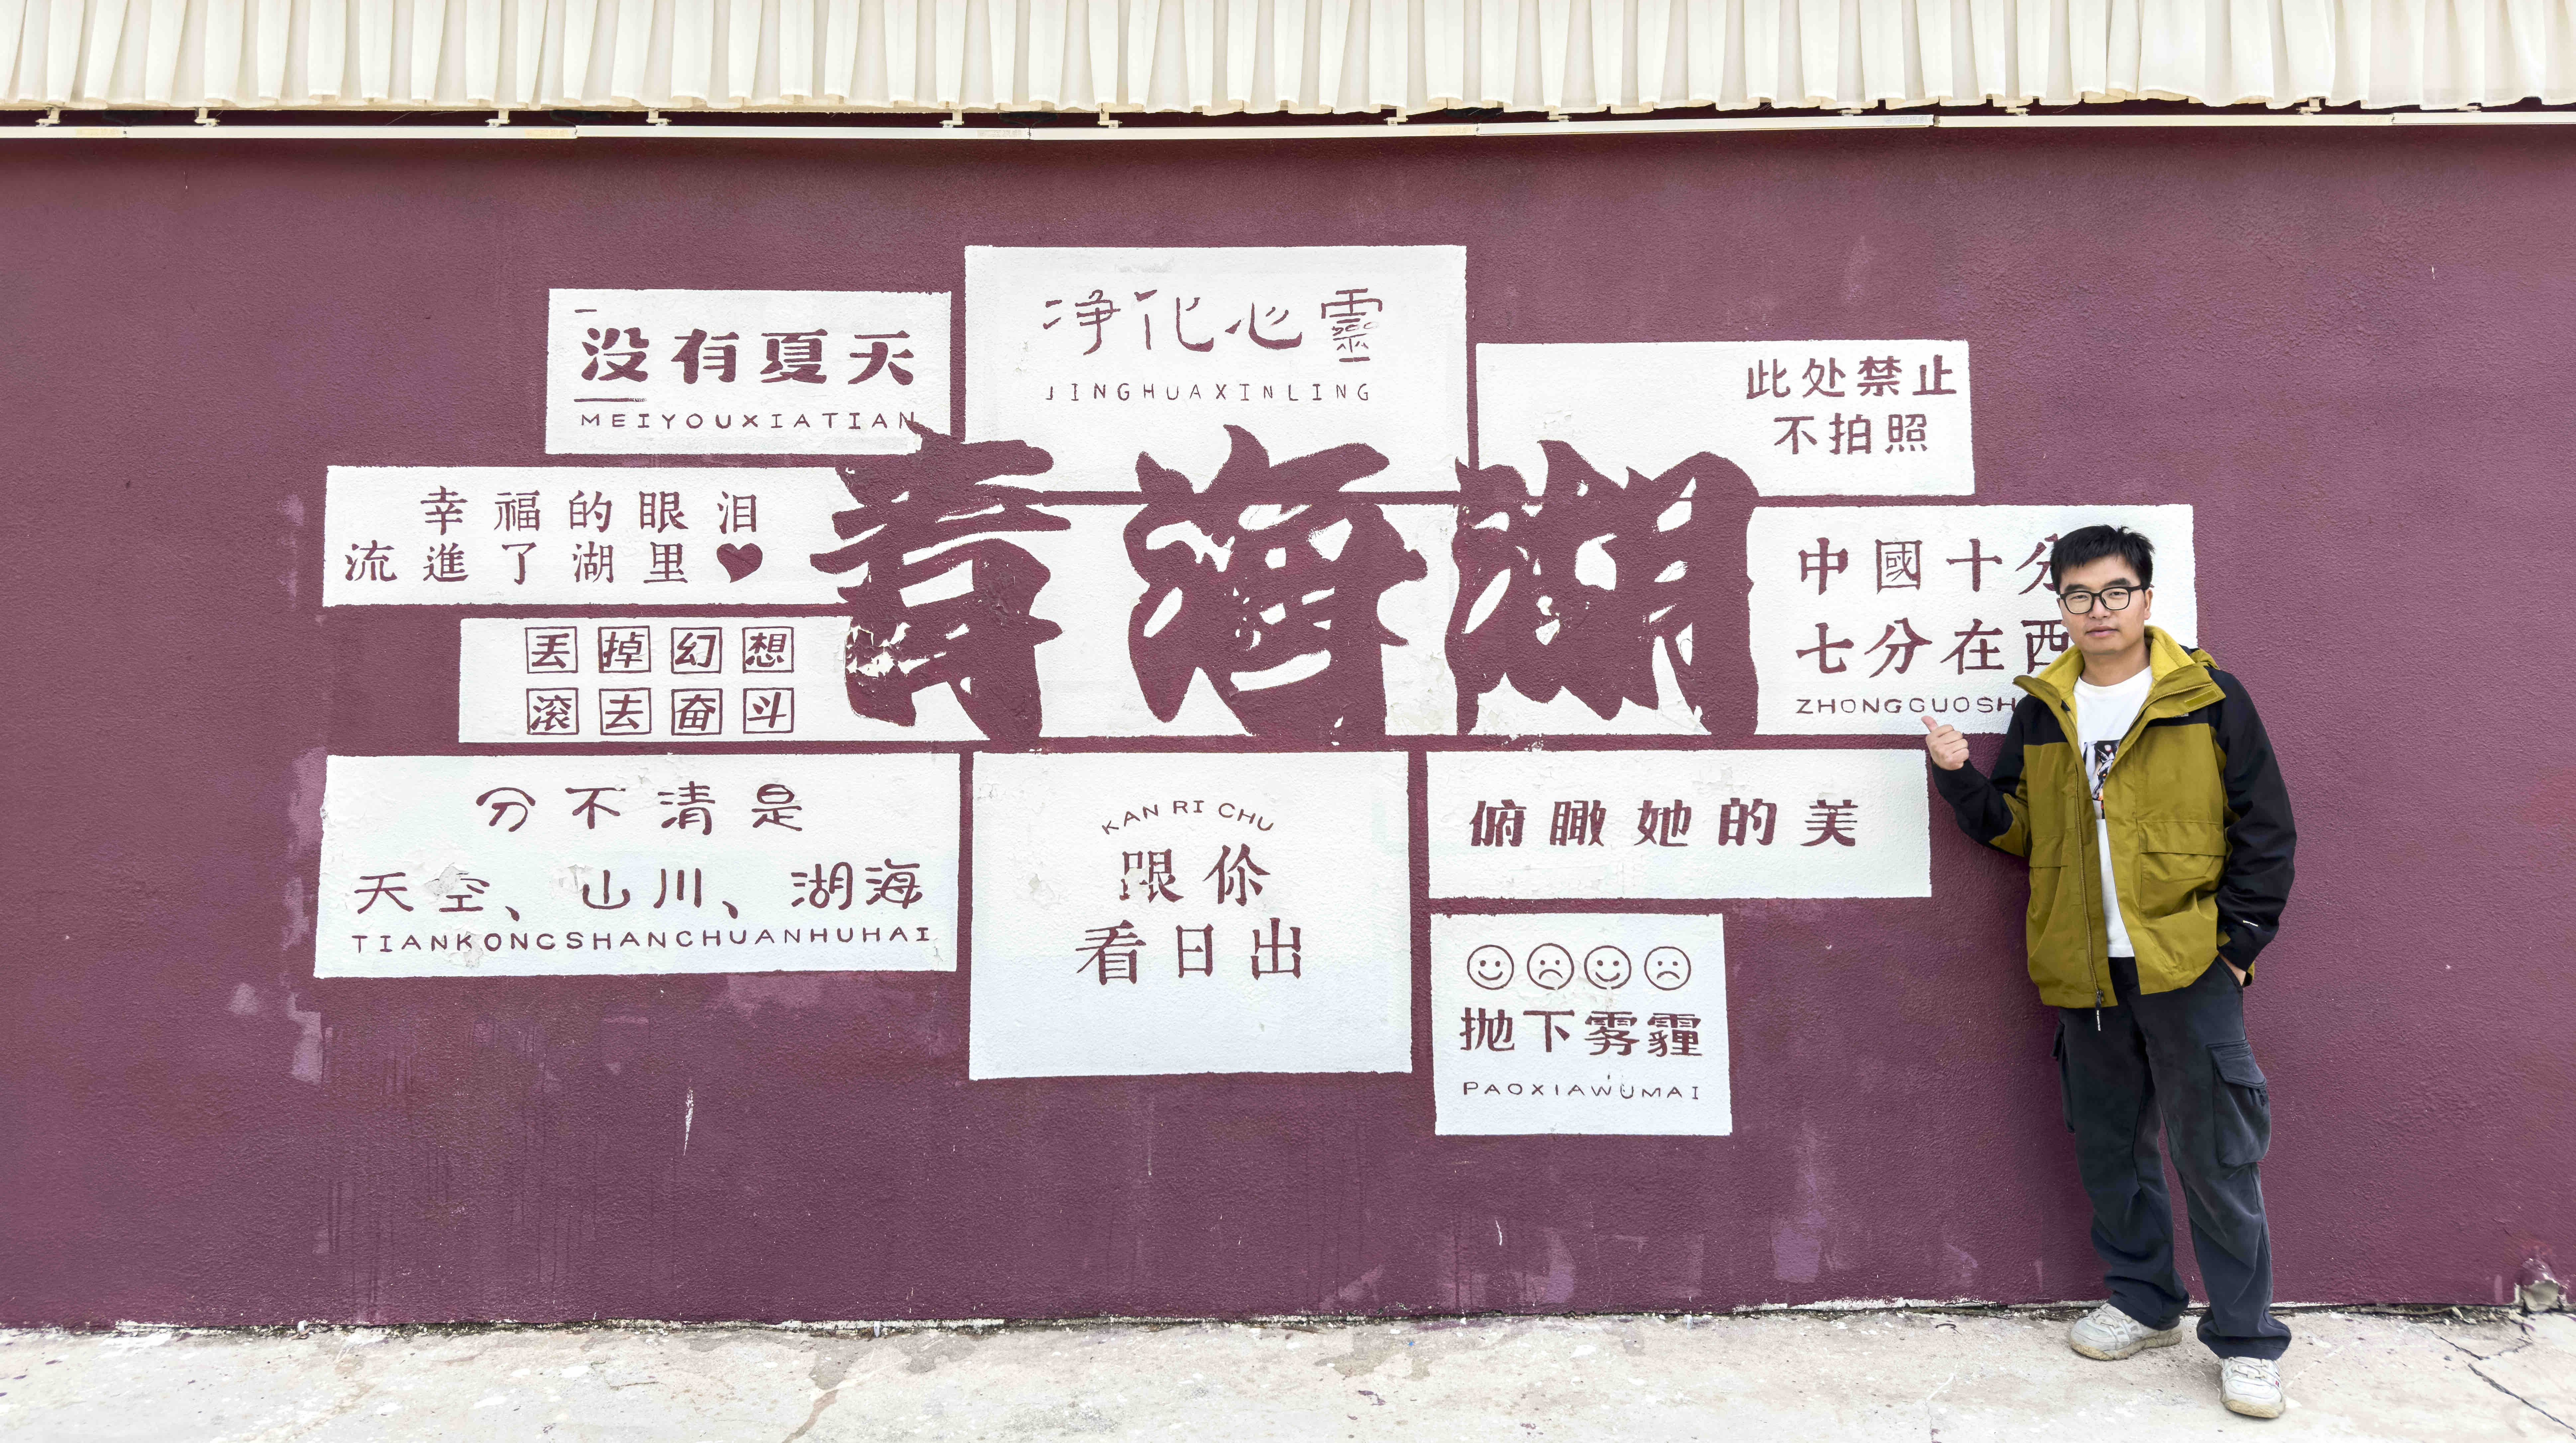 没有夏天
MEIYOUXIATIAN
净化心靈
JINGHUAXINLING
此处禁止
不拍照
幸福的眼泪
流進了湖里
青海湖
中國十分
七分在西
ZHONGGUOSH
丢掉幻想
滚去奋斗
分不清是
天空、山川、湖海
TIANKONGSHANCHUANHUHAI
KAN RI CHU
跟你
看日出
俯瞰她的美
抛下雾霾
PAOXIAWUMAI